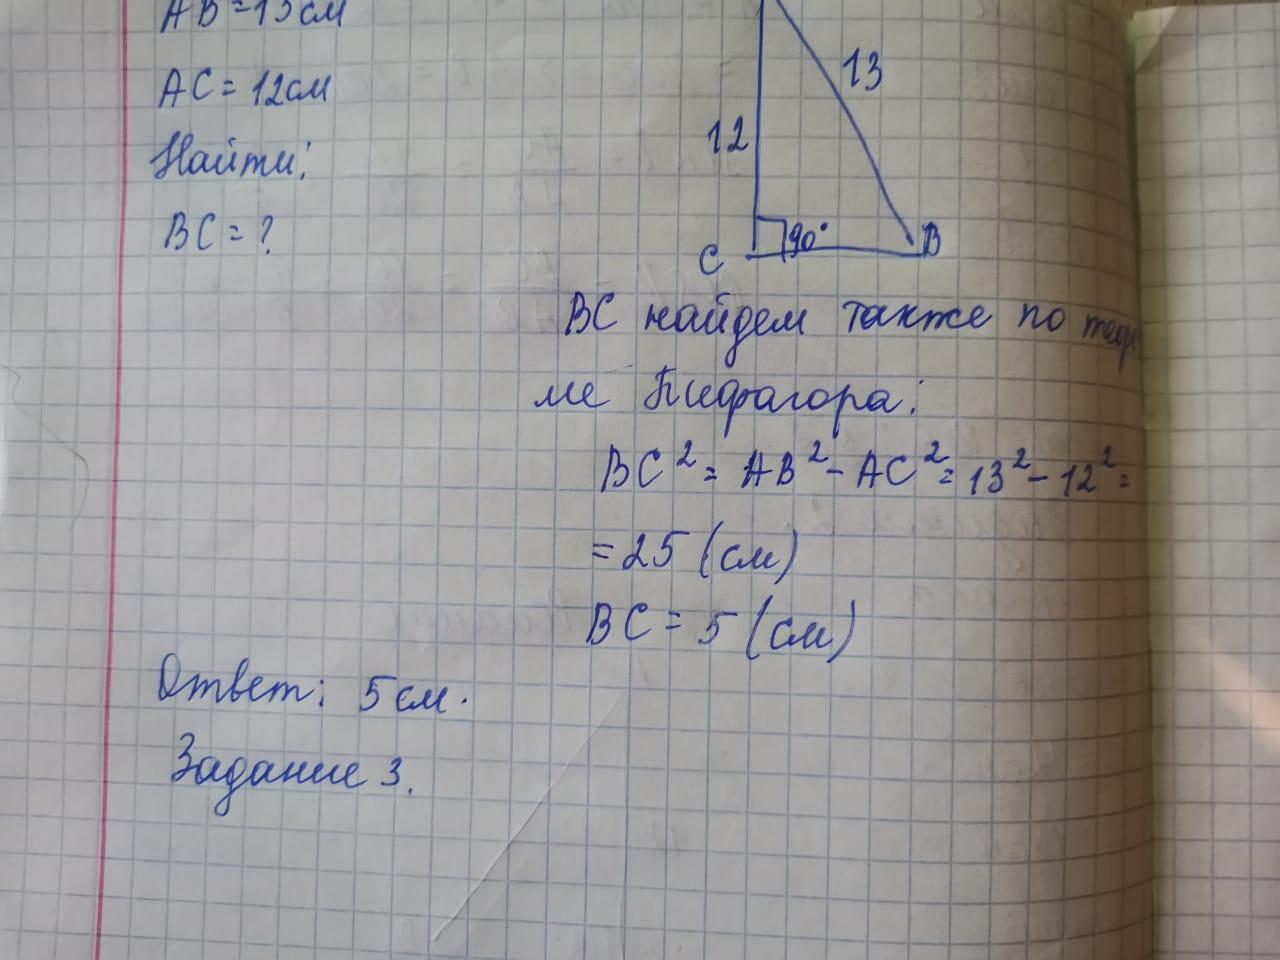 AB = 13 см
AC = 12 см
13
12
Найти:
BC = ?
C
90°
B
BC найдем также по теоре
ме Пифагора:
BC² = AB² - AC² = 13² - 12² =
= 25 (см)
BC = 5 (см)
Ответ: 5 см.
Задание 3.